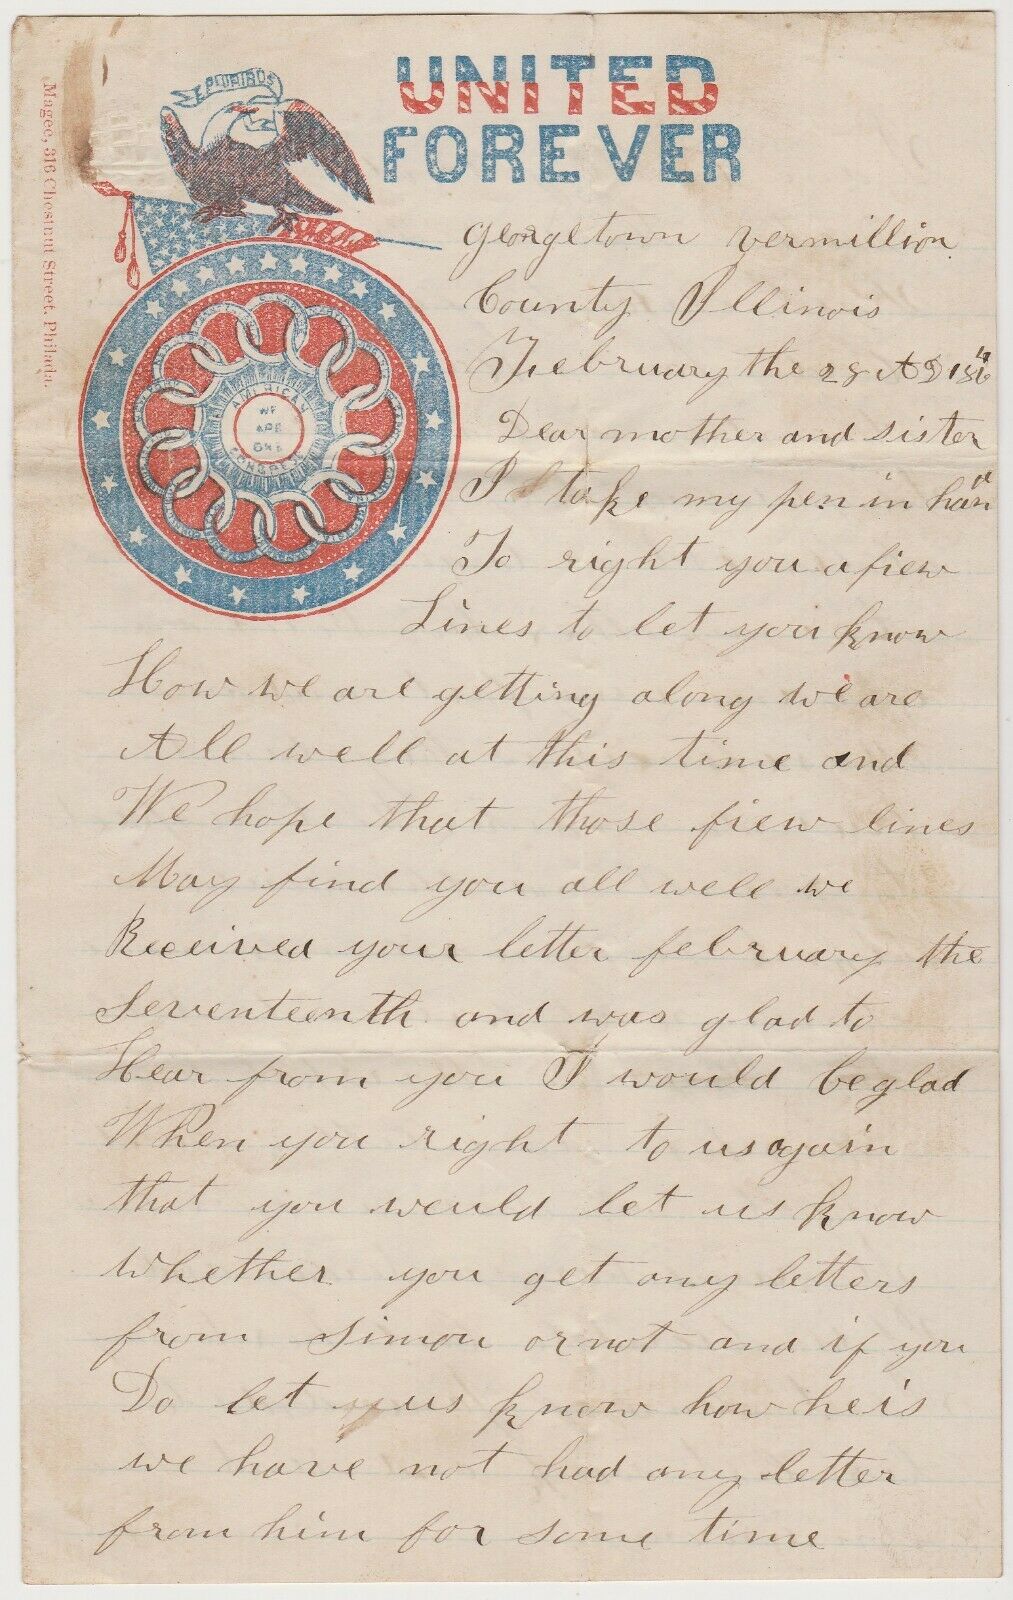 E PLURIBUS
UNITED
FOREVER
Magee, 316 Chestnut Street, Philada.
AMERICAN
WE
ARE
ONE
CONGRESS
georgetown vermillion
County Illinois
February the 28 AD 186
Dear mother and sister
I take my pen in han d
To right you a fiew
Lines to let you know
How we are getting along we are
All well at this time and
We hope that those fiew lines
May find you all well we
Received your letter february the
Seventeenth and was glad to
Hear from you I would be glad
When you right to us again
that you would let us know
whether you get any letters
from Simon or not and if you
Do let us know how he is
we have not had any letter
from him for some time